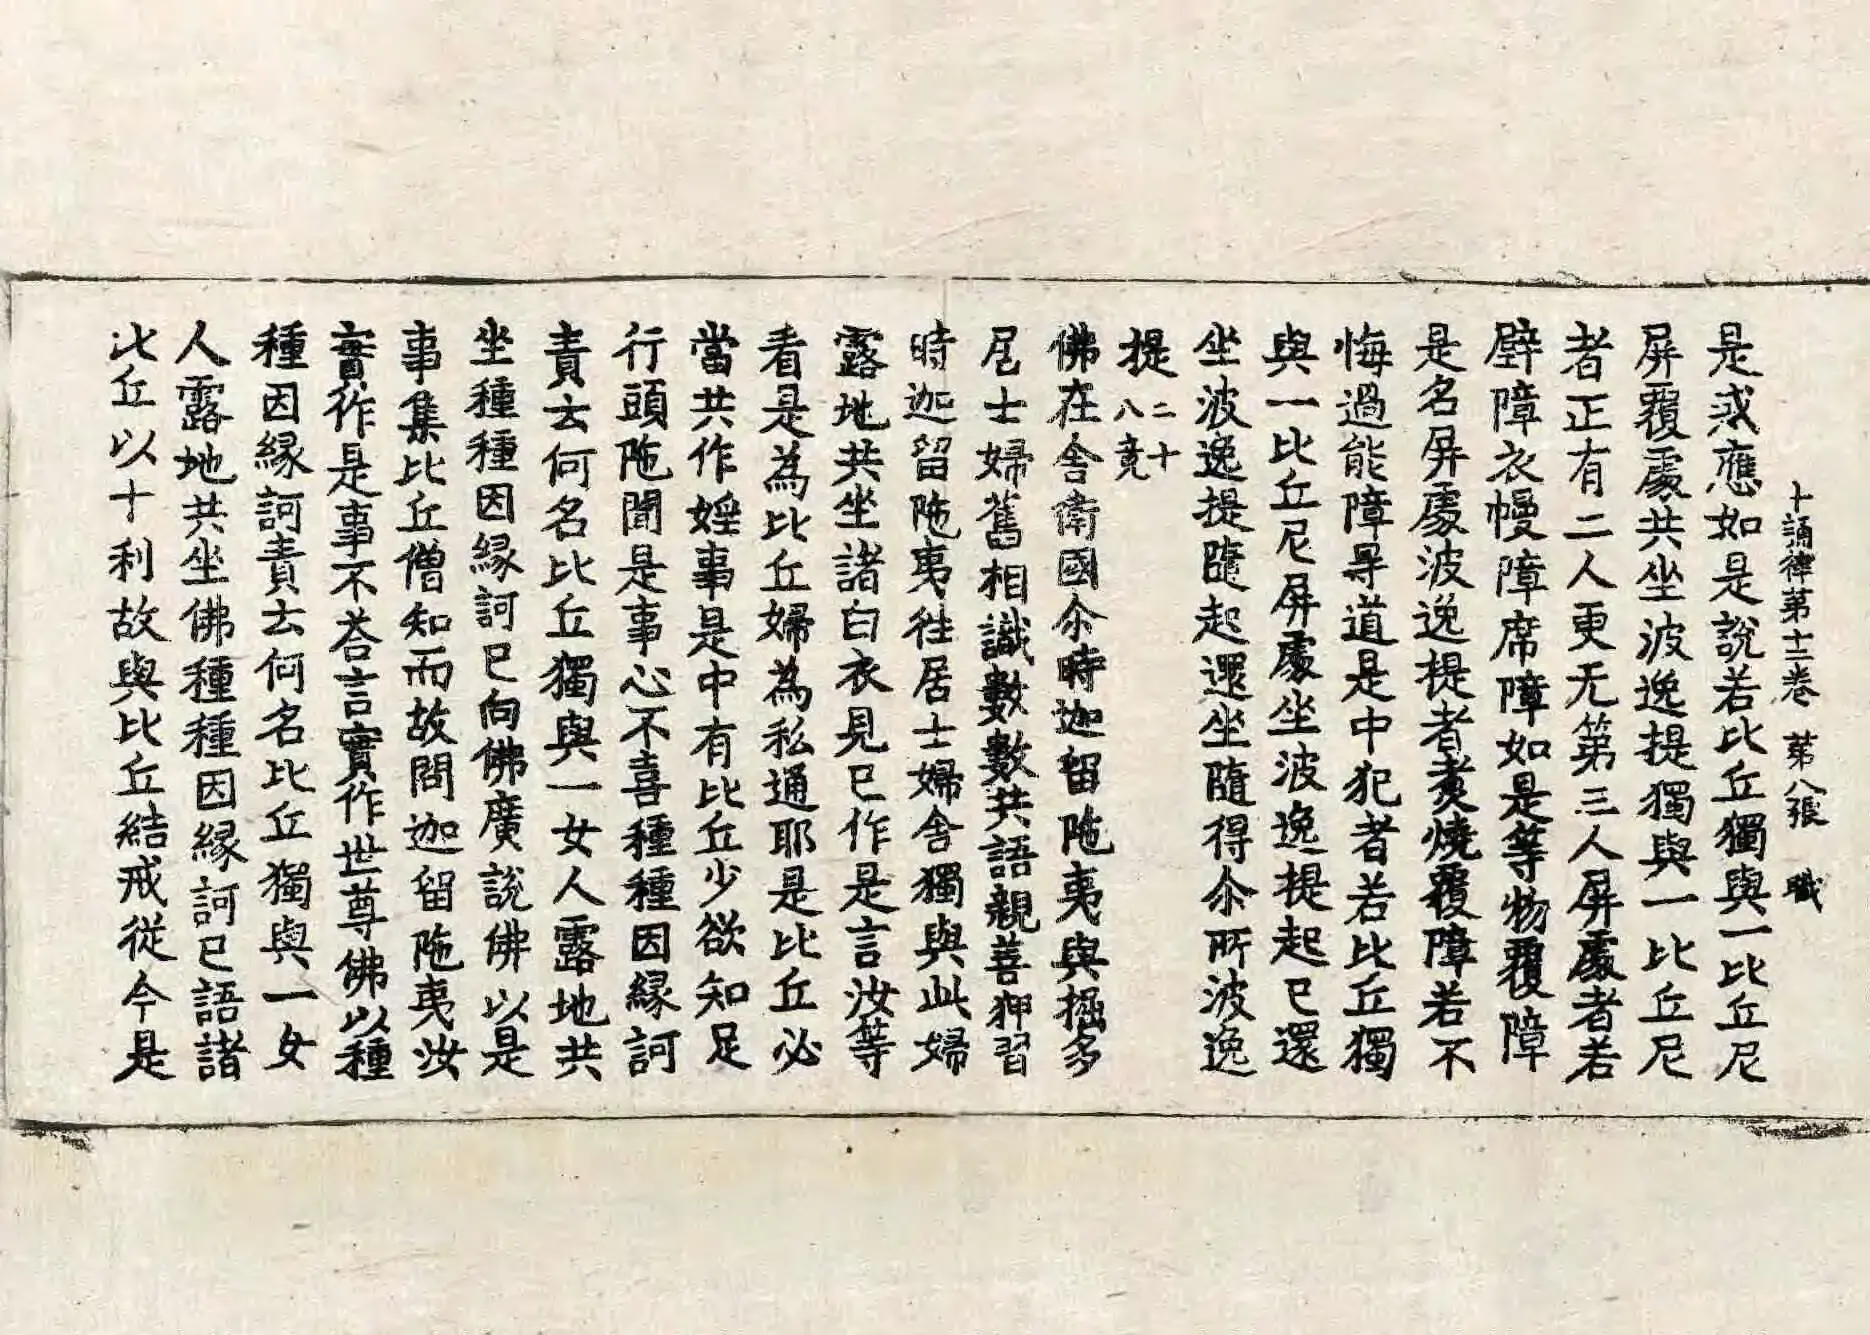 十誦律第十二卷 第八張 職
是戒應如是說若比丘獨與一比丘尼
屏覆處共坐波逸提獨與一比丘尼
者正有二人更无第三人屏處者若
壁障衣幔障席障如是等物覆障
是名屏處波逸提者煑燒覆障若不
悔過能障㝵道是中犯者若比丘獨
與一比丘尼屏處坐波逸提起已還
坐波逸提隨起還坐隨得尒所波逸
提二十八竟
佛在舍衛國尒時迦留陁夷與掘多
居士婦舊相識數數共語親善狎習
時迦留陁夷往居士婦舍獨與此婦
露地共坐諸白衣見已作是言汝等
看是為比丘婦為私通耶是比丘必
當共作婬事是中有比丘少欲知足
行頭陁聞是事心不喜種種因縁訶
責云何名比丘獨與一女人露地共
坐種種因縁訶已向佛廣說佛以是
事集比丘僧知而故問迦留陁夷汝
實作是事不荅言實作世尊佛以種
種因縁訶責云何名比丘獨與一女
人露地共坐佛種種因縁訶已語諸
比丘以十利故與比丘結戒從今是